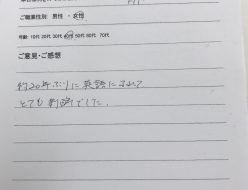 ご職業性別: 男性 ・ 女性
年齢: 10代 20代 30代 40代 50代 60代 70代
ご意見・ご感想
約20年ぶりに英語にふれて
とても刺激でした。